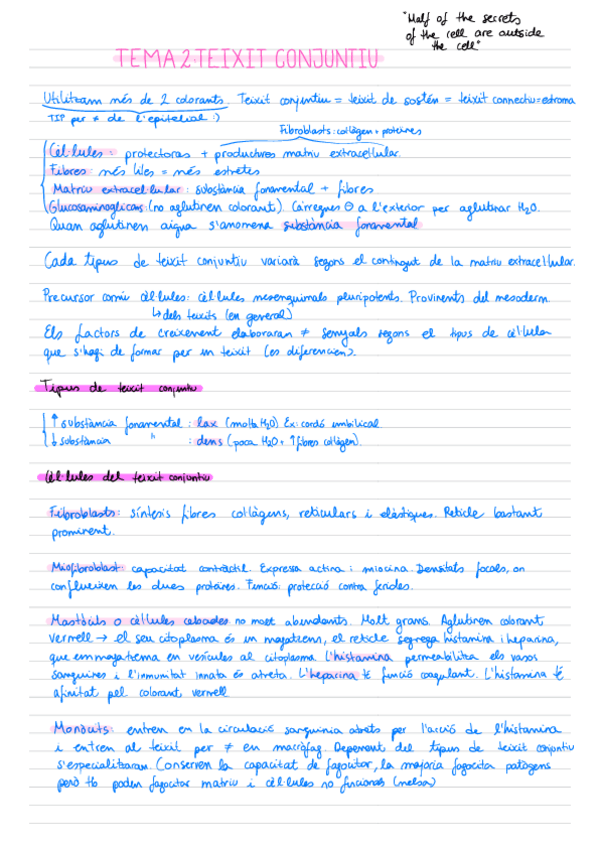 "Half of the secrets
of the cell are outside
the cell"
TEMA 2: TEIXIT CONJUNTIU
Utilitzam més de 2 colorants. Teixit conjuntiu = teixit de sostén = teixit connectiu = estroma
TIP per ≠ de l'epitelial :)
Fibroblasts: col·làgen + proteïnes
Cèl·lules: protectoras + productores matriu extracel·lular.
Fibres: més llises = més estretes
Matriu extracel·lular: substància fonamental + fibres
Glucosaminoglicans (no aglutinen colorant). Càrregues ⊖ a l'exterior per aglutinar H2O.
Quan aglutinen aigua s'anomena substància fonamental
Cada tipus de teixit conjuntiu variarà segons el contingut de la matriu extracel·lular.
Precursor comú cèl·lules: cèl·lules mesenquimals pluripotents. Provinents del mesoderm.
↳ dels teixits (en general)
Els factors de creixement elaboraran ≠ senyals segons el tipus de cèl·lula
que s'hagi de formar per un teixit (es diferencien).
Tipus de teixit conjuntiu
↑ substància fonamental: lax (molta H2O) Ex: cordó umbilical
↓ substància " : dens (poca H2O + ↑ fibres col·làgen).
Cèl·lules del teixit conjuntiu
Fibroblasts: síntesis fibres col·làgens, reticulars i elàstiques. Reticle bastant
prominent.
Miofibroblast: capacitat contràctil. Expressa actina i miocina. Densitats focals, on
conflueixen les dues proteïnes. Funció: protecció contra ferides.
Mastòcits o cèl·lules cebades no molt abundants. Molt grans. Aglutinen colorant
vermell → el seu citoplasma és un magatzem, el reticle segrega histamina i heparina,
que emmagatzema en vesícules al citoplasma L'histamina permeabilitza els vasos
sanguinis i l'immunitat innata és atreta. L'heparina té funció coagulant. L'histamina té
afinitat pel colorant vermell
Monòcits: entren en la circulació sanguínia atrets per l'acció de l'histamina
i entren al teixit per ≠ en macròfag. Depenent del tipus de teixit conjuntiu
s'especialitzaran. Conserven la capacitat de fagocitar, la majoria fagocita patògens
però tb poden fagocitar matriu i cèl·lules no funcionals (melsa)